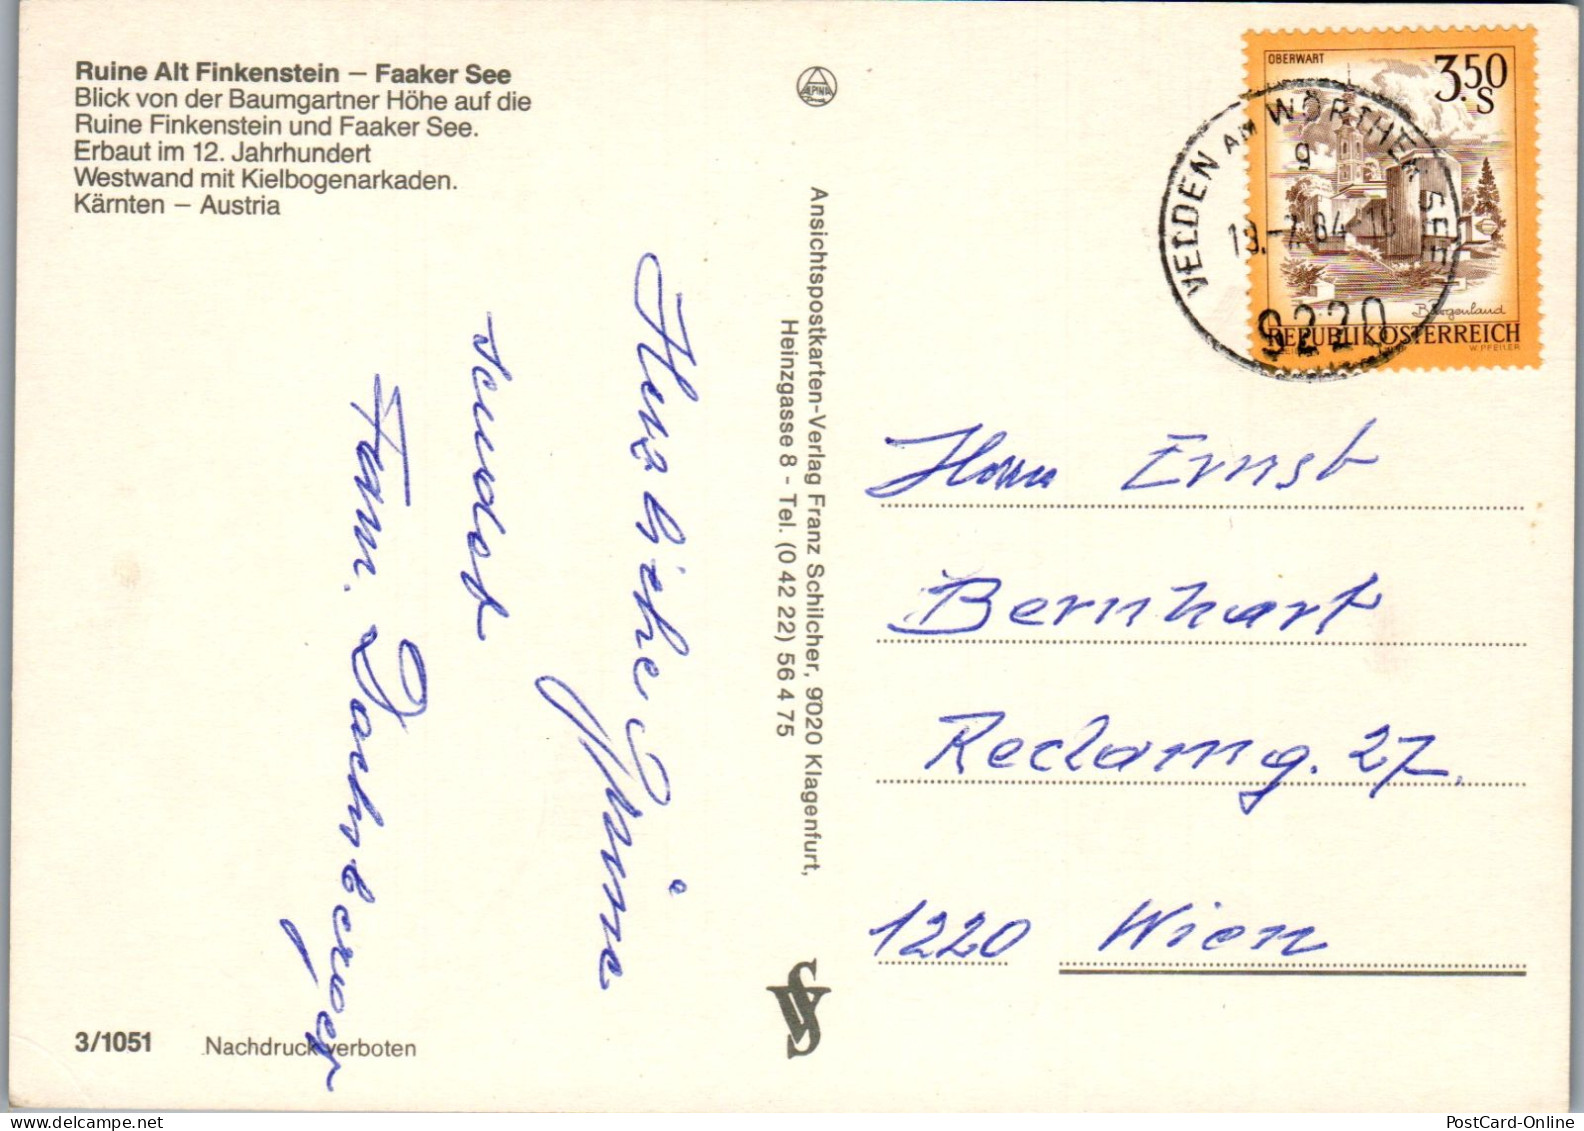 Ruine Alt Finkenstein – Faaker See
Blick von der Baumgartner Höhe auf die
Ruine Finkenstein und Faaker See.
Erbaut im 12. Jahrhundert
Westwand mit Kielbogenarkaden.
Kärnten – Austria
Herzliche Grüsse
sendet
Fam. Dachsberger
3/1051 Nachdruck verboten
ALPINA
Ansichtspostkarten-Verlag Franz Schilcher, 9020 Klagenfurt,
Heinzgasse 8 - Tel. (0 42 22) 56 4 75
OBERWART
3.50
S
Burgenland
REPUBLIK ÖSTERREICH
W. PFEILER
VELDEN AM WÖRTHER SEE
g
9220
Ernst
Bernhart
Reclamg. 27,
1220 Wien
PostCard-Online
1.delcampe.net